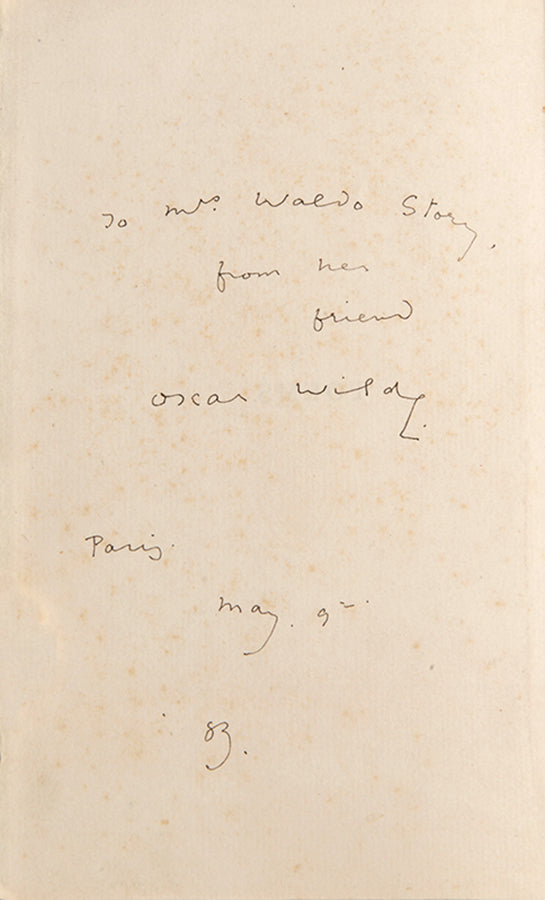 To Mrs. Waldo Story,
from her
friend
Oscar Wilde.
Paris.
May. 9–.
'83.